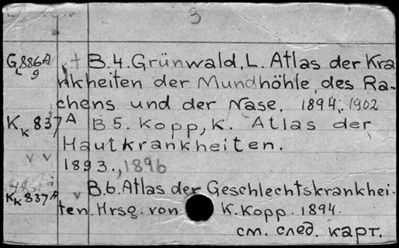 3
G 886A B.4. Grünwald, L. Atlas der Kra
9 nkheiten der Mundhöhle, des Ra-
chens und der Nase. 1894, 1902
Kk 837A B5. Kopp, K. Atlas der
Hautkrankheiten.
1893., 1896
B.6. Atlas der Geschlechtskrankhei-
Kk 837A ten. Hrsg. von K. Kopp. 1894.
см. след. карт.